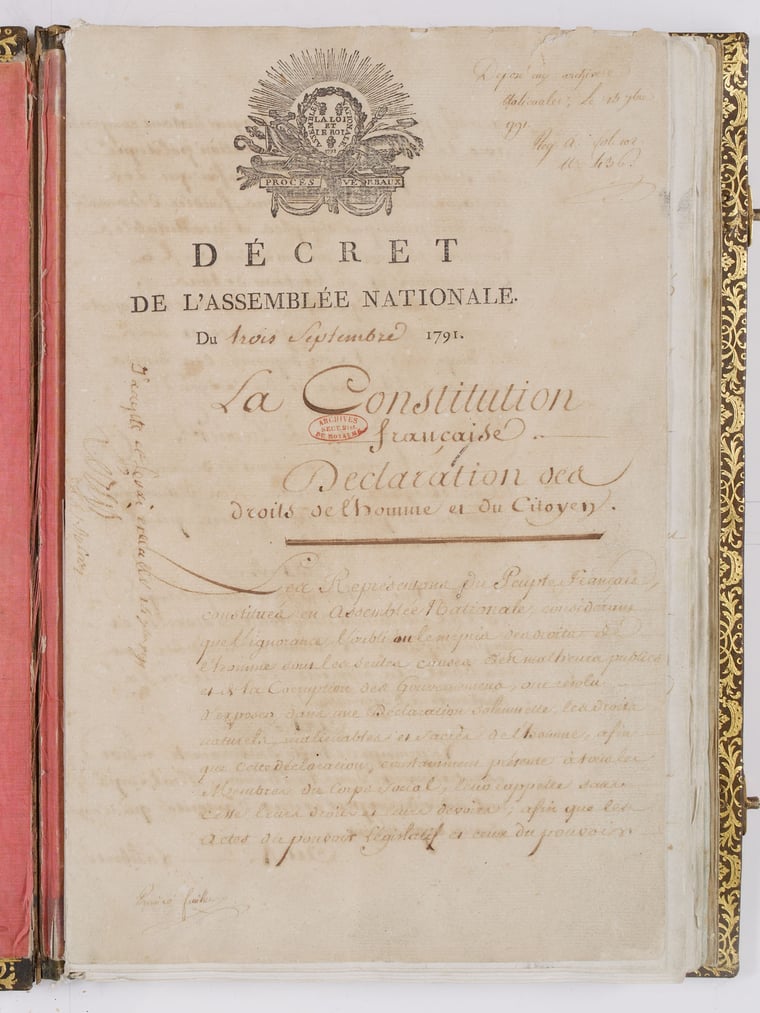 LA LOI
ET
LE ROI
PROCÈS VERBAUX
Déposé aux archives
Nationales, le
DÉCRET
DE L'ASSEMBLÉE NATIONALE.
Du trois Septembre 1791.
La Constitution
française
ARCHIVES
DU ROYAUME
Déclaration des
droits de l'homme et du Citoyen.
Les Représentans du Peuple Français,
constitués en Assemblée Nationale, considérant
que l'ignorance, l'oubli ou le mépris des droits de
l'homme sont les seules causes des malheurs publics
et de la Corruption des Gouvernemens, ont résolu
d'exposer dans une Déclaration Solennelle, les droits
naturels, inaliénables et sacrés de l'homme, afin
que cette déclaration, constamment présente à tous les
Membres du Corps Social, leur rappelle sans
cesse leurs droits et leurs devoirs; afin que les
Actes du pouvoir Législatif et ceux du pouvoir